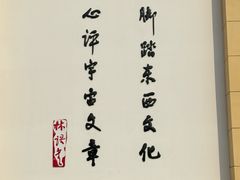 脚踏东西文化
心评宇宙文章
林语堂